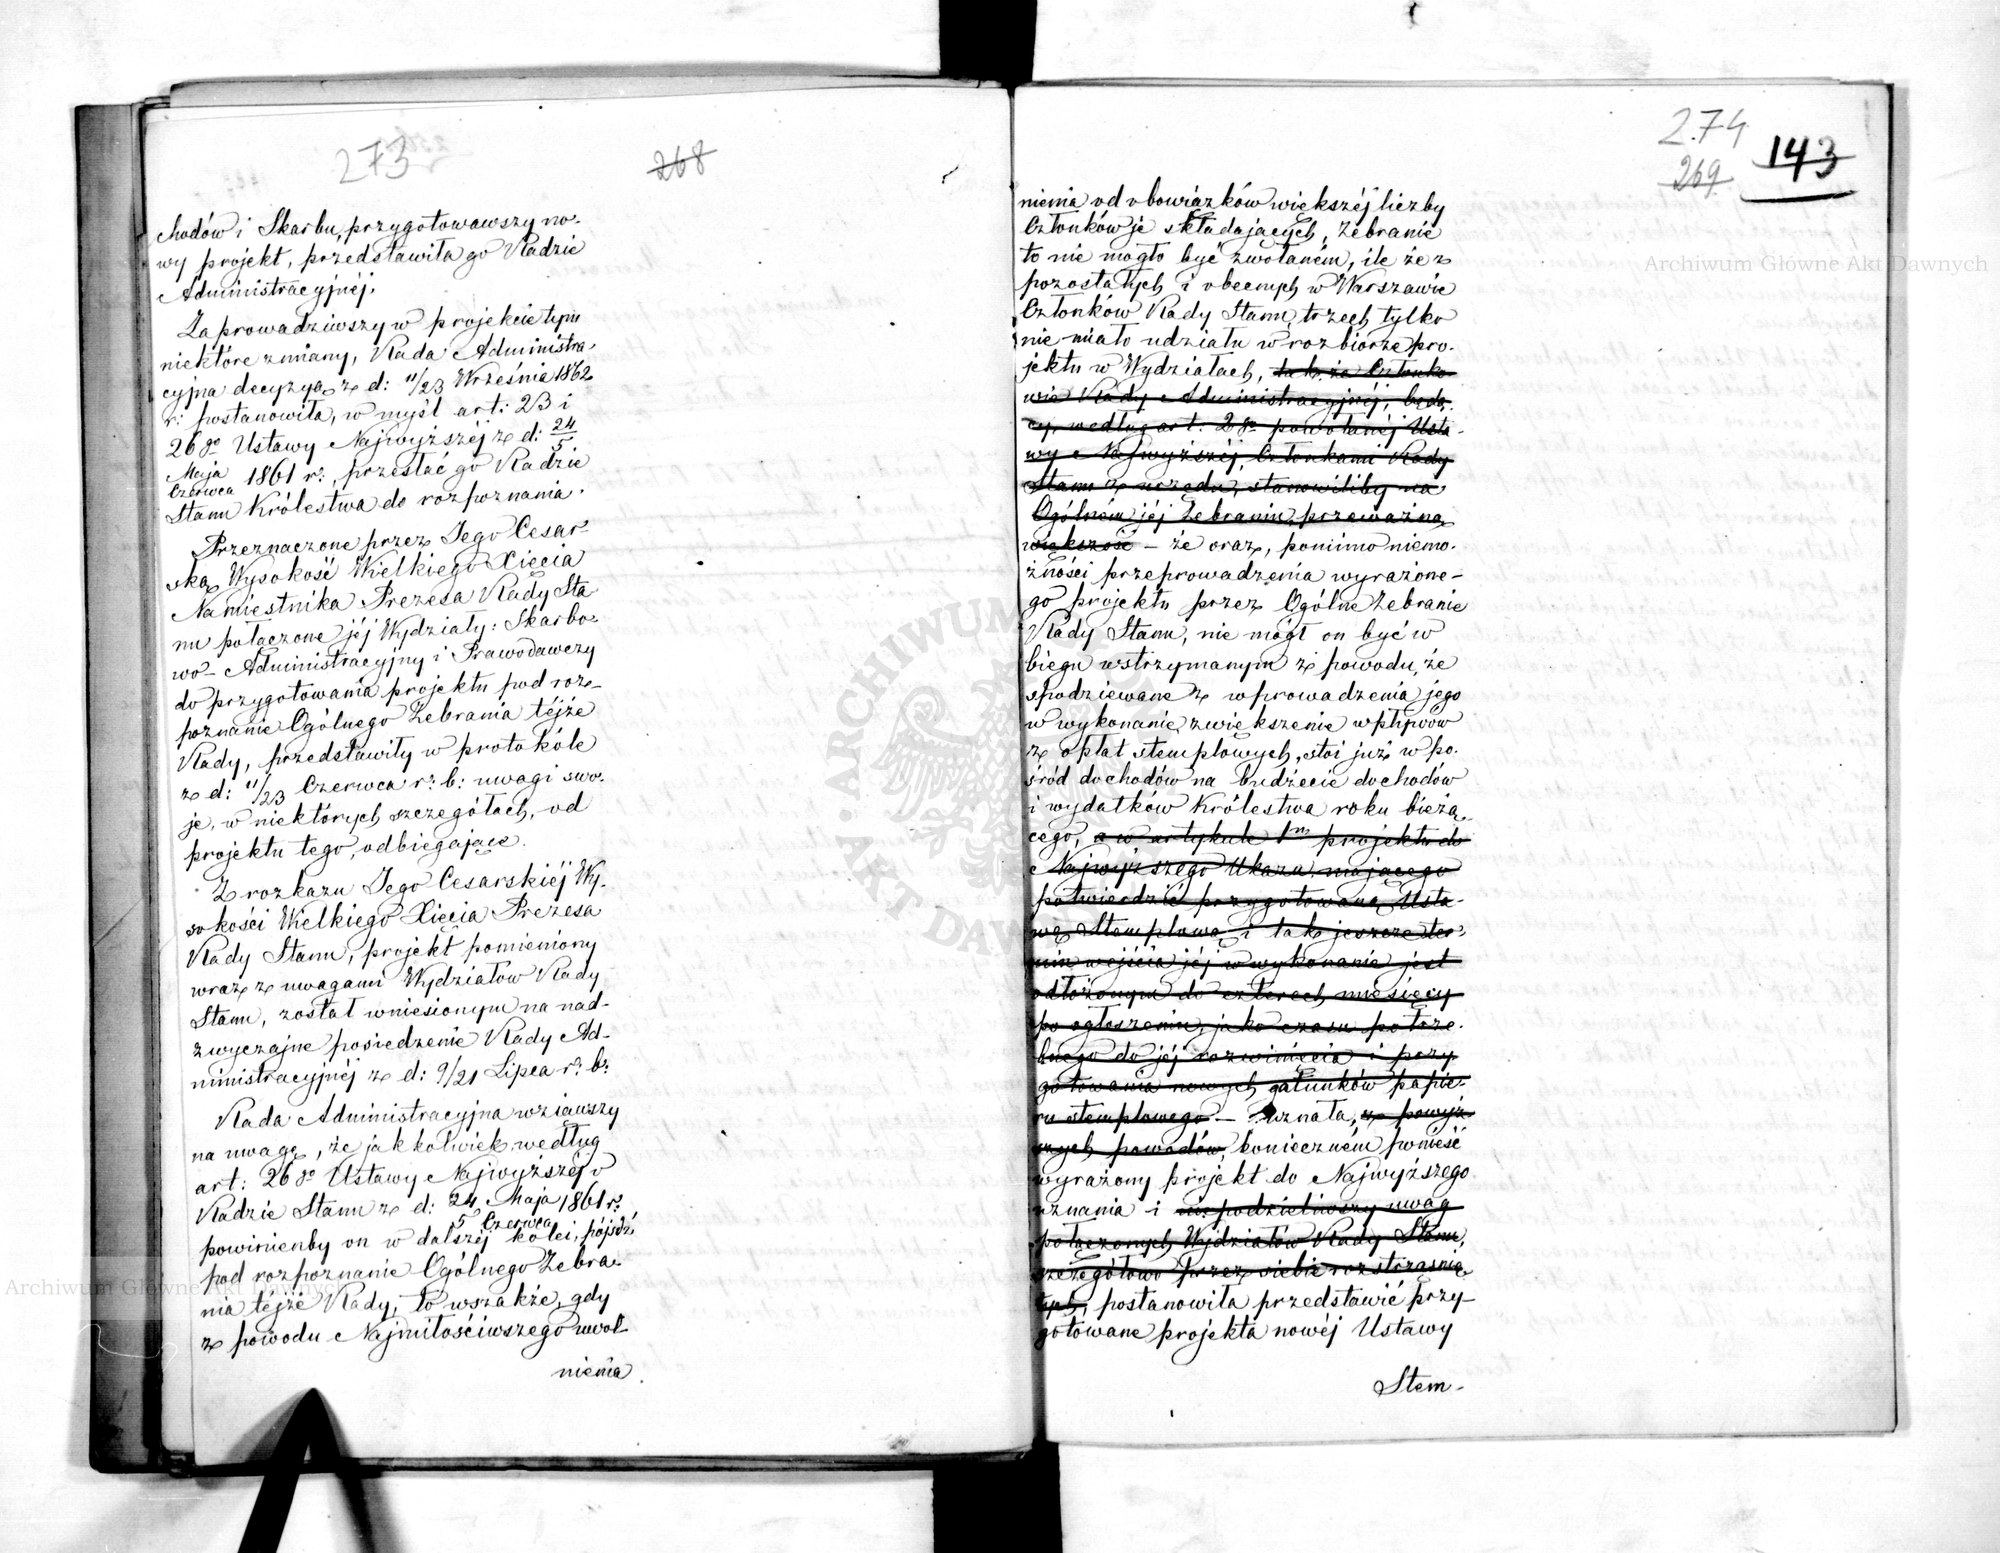 273
268
chodów i Skarbu, przygotowawszy no-
wy projekt, przedstawiła go Radzie
Administracyjnéj.
Zaprowadziwszy w projekcie tym
niektóre zmiany, Rada Administra-
cyjna decyzyą z d: 11/23 Września 1862
r: postanowiła, w myśl art: 23 i
26go Ustawy Najwyższéj z d: 24/5
Maja/Czerwca 1861 r:, przesłać go Radzie
Stanu Królestwa do rozpoznania.
Przeznaczone przez Jego Cesar-
ską Wysokość Wielkiego Xięcia
Namiestnika Prezesa Rady Sta
nu połączone jéj Wydziały: Skarbo-
wo-Administracyjny i Prawodawczy
do przygotowania projektu pod roz-
poznanie Ogólnego Zebrania téjże
Rady, przedstawiły w protokóle
z d: 11/23 Czerwca r: b: uwagi swo-
je, w niektórych szczegółach, od
projektu tego, odbiegające.
Z rozkazu Jego Cesarskiéj Wy-
sokości Wielkiego Xięcia Prezesa
Rady Stanu, projekt pomieniony
wraz z uwagami Wydziałów Rady
Stanu, został wniesionym na nad-
zwyczajne posiedzenie Rady Ad-
ministracyjnéj z d: 9/21 Lipca r: b:
Rada Administracyjna wziąwszy
na uwagę, że jakkolwiek według
art: 26go Ustawy Najwyższéj o
Radzie Stanu z d: 24 Maja/5 Czerwca 1861 r:
powinienby on w dalszéj kolei, pójść
pod rozpoznanie Ogólnego Zebra-
nia téjże Rady, to wszakże, gdy
z powodu Najmiłościwszego uwol-
nienia
274
269
143
nienia od obowiązków większéj liczby
Członków je składających, Zebranie
to nie mogło być zwołaném, ile że z
pozostałych i obecnych w Warszawie
Członków Rady Stanu, trzech tylko
nie miało udziału w rozbiorze pro-
jektu w Wydziałach, tak, że Członko-
wie Rady Administracyjnéj, będą-
cy, według art: 2go powołanéj Usta-
wy Najwyższéj, Członkami Rady
Stanu z urzędu, stanowiliby na
Ogólnem jéj Zebraniu, przeważną
większość – że oraz, pomimo niemo-
żności przeprowadzenia wyrażone-
go projektu przez Ogólne Zebranie
Rady Stanu, nie mógł on być w
biegu wstrzymanym z powodu, że
spodziewane z wprowadzenia jego
w wykonanie, zwiększenie wpływów
z opłat stemplowych, stoi już w po-
śród dochodów na budżecie dochodów
i wydatków Królestwa roku bieżą-
cego, a w artykule 1m projektu do
Najwyższego Ukazu, mającego
potwierdzić przygotowaną Usta-
wę Stemplową, i tak jeszcze ter-
min wejścia jéj w wykonanie jest
odłożonym do czterech miesięcy
po ogłoszeniu, jako czasu potrze-
bnego do jéj rozwinięcia i przy
gotowania nowych gatunków papie-
ru stemplowego – uznała, z powyż
szych powodów, konieczném wnieść
wyrażony projekt do Najwyższego
uznania i nie podzieliwszy uwag
połączonych Wydziałów Rady Stanu,
szczegółowo przez siebie roztrząśnię-
tych, postanowiła przedstawić przy-
gotowane projekta nowéj Ustawy
Stem-
Archiwum Główne Akt Dawnych
Archiwum Główne Akt Dawnych